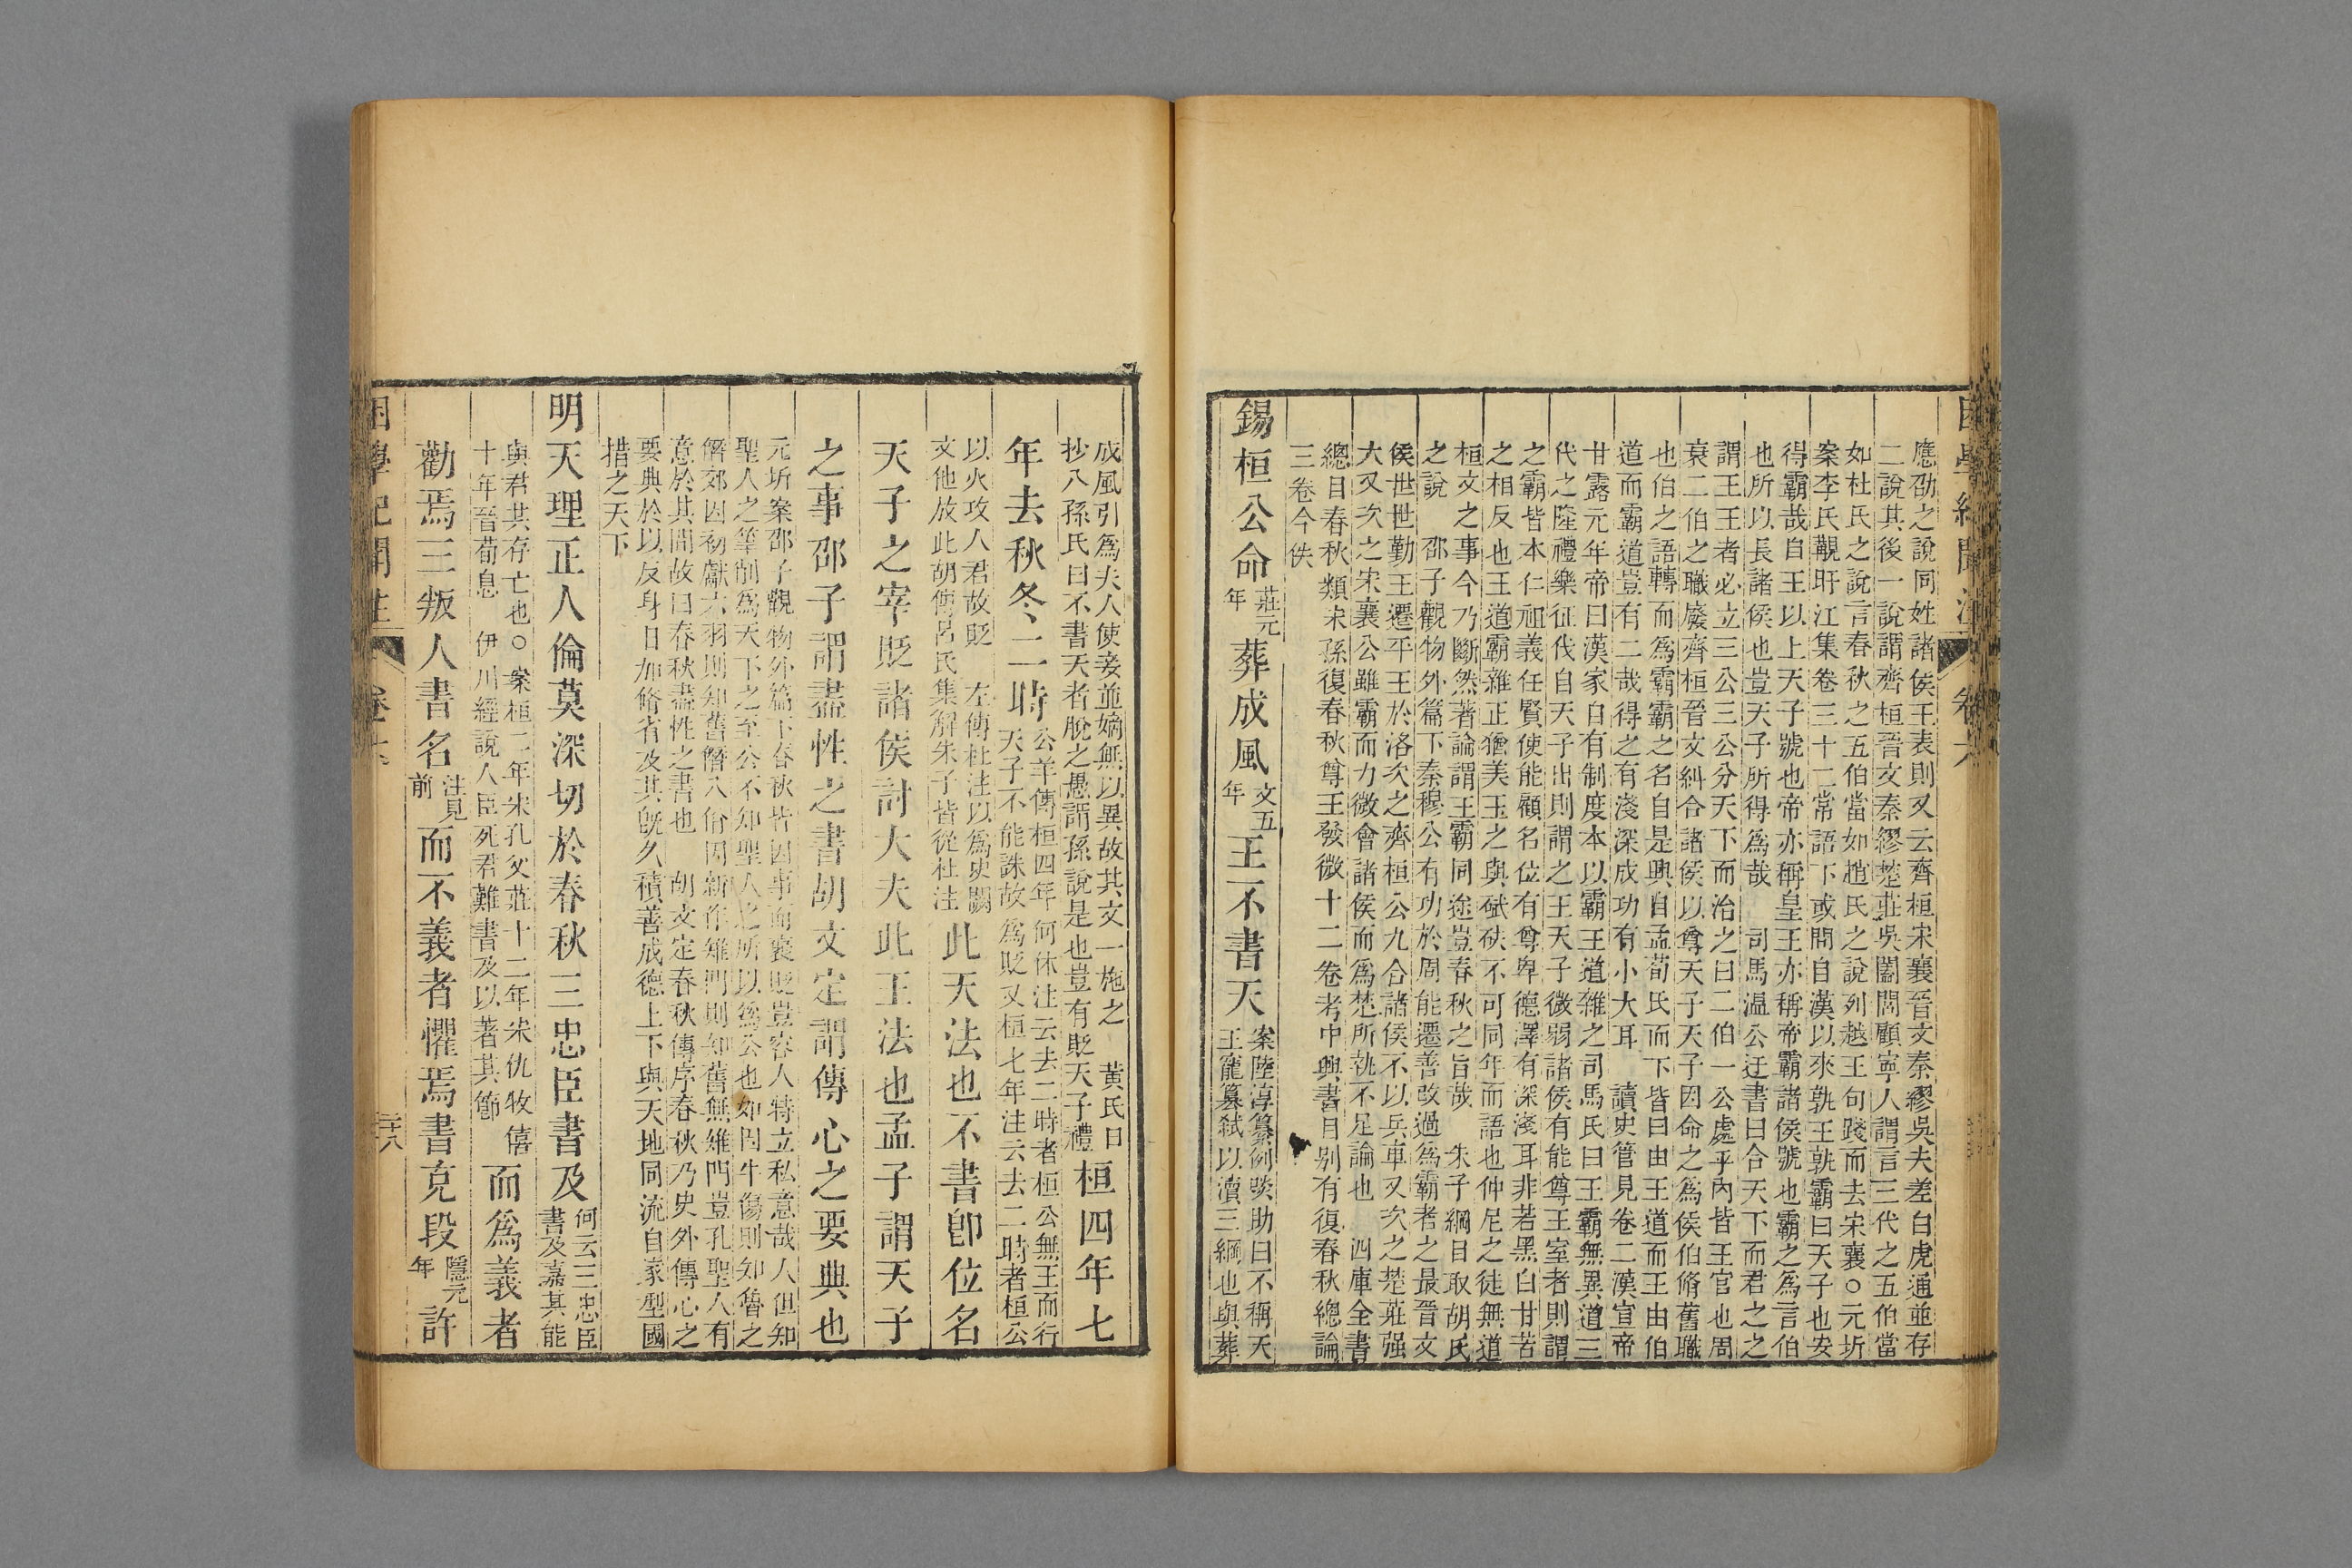 困學紀聞注 卷六
應劭之說同姓諸侯王表則又云齊桓宋襄晉文秦繆吳夫差白虎通並存
二說其後一說謂齊桓晉文秦繆楚莊吳闔閭顧寧人謂言三代之五伯當
如杜氏之說言春秋之五伯當如趙氏之說列越王句踐而去宋襄○元圻
案李氏覯盱江集卷三十二常語下或問自漢以來孰王孰霸曰天子也安
得霸哉自王以上天子號也帝亦稱皇王亦稱帝霸諸侯號也霸之爲言伯
也所以長諸侯也豈天子所得爲哉 司馬温公迂書曰合天下而君之之
謂王王者必立三公三公分天下而治之曰二伯一公處乎內皆王官也周
衰二伯之職廢齊桓晉文糾合諸侯以尊天子天子因命之爲侯伯脩舊職
也伯之語轉而爲霸霸之名自是興自孟荀氏而下皆曰由王道而王由伯
道而霸道豈有二哉得之有淺深成功有小大耳 讀史管見卷二漢宣帝
甘露元年帝曰漢家自有制度本以霸王道雜之司馬氏曰王霸無異道三
代之隆禮樂征伐自天子出則謂之王天子微弱諸侯有能尊王室者則謂
之霸皆本仁祖義任賢使能顧名位有尊卑德澤有深淺耳非若黑白甘苦
之相反也王道霸雜正猶美玉之與碔砆不可同年而語也仲尼之徒無道
桓文之事今乃斷然著論謂王霸同途豈春秋之旨哉 朱子綱目取胡氏
之說 邵子觀物外篇下秦穆公有功於周能遷善改過爲霸者之最晉文
侯世世勤王遷平王於洛次之齊桓公九合諸侯不以兵車又次之楚莊强
大又次之宋襄公雖霸而力微會諸侯而爲楚所執不足論也 四庫全書
總目春秋類宋孫復春秋尊王發微十二卷考中興書目别有復春秋總論
三卷今佚
錫桓公命莊元年葬成風文五年王不書天案陸淳纂例啖助曰不稱天
王寵簒弑以瀆三綱也與葬
成風引爲夫人使妾並嫡無以異故其文一施之 黄氏日
抄八孫氏曰不書天者脫之愚謂孫說是也豈有貶天子禮桓四年七
年去秋冬二時公羊傳桓四年何休注云去二時者桓公無王而行
天子不能誅故爲貶又桓七年注云去二時者桓公
以火攻人君故貶 左傳杜注以爲史闕
文他放此胡傳呂氏集解朱子皆從杜注此天法也不書卽位名
天子之宰貶諸侯討大夫此王法也孟子謂天子
之事邵子謂盡性之書胡文定謂傳心之要典也
元圻案邵子觀物外篇下春秋皆因事而襃貶豈容人特立私意哉人但知
聖人之筆削爲天下之至公不知聖人之所以爲公也如因牛傷則知魯之
僭郊因初獻六羽則知舊僭八佾因新作雉門則知舊無雉門豈孔聖人有
意於其間故曰春秋盡性之書也 胡文定春秋傳序春秋乃史外傳心之
要典於以反身日加脩省及其旣久積善成德上下與天地同流自家型國
措之天下
明天理正人倫莫深切於春秋三忠臣書及何云三忠臣
書及嘉其能
與君其存亡也○案桓二年宋孔父莊十二年宋仇牧僖
十年晉荀息 伊川經說人臣死君難書及以著其節而爲義者
勸焉三叛人書名注見前而不義者懼焉書克段隱元年許
困學紀聞注 卷六 二十八